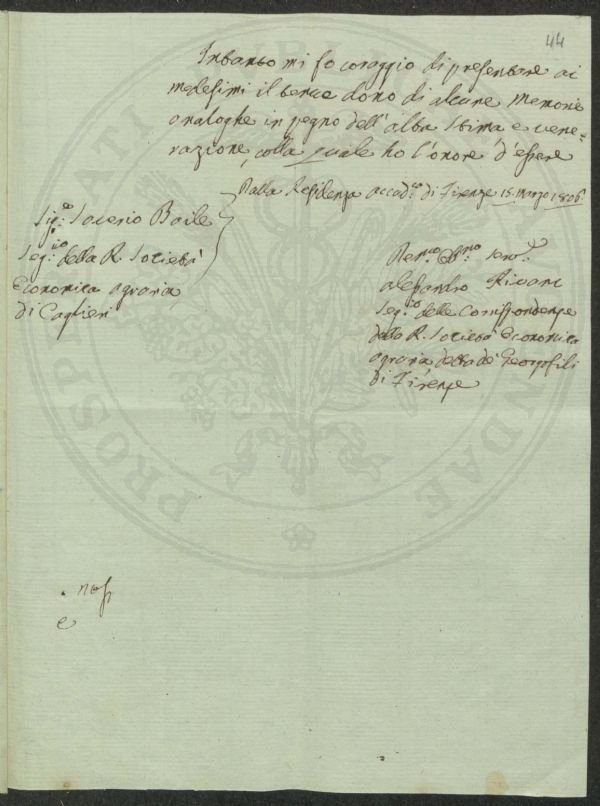 44
Intanto mi fo coraggio di presentare ai
medesimi il tenue dono di alcune memorie
analoghe in pegno dell'alta stima e vene-
razione, colla quale ho l'onore d'essere
Dalla Residenza accad.ca di Firenze 15. Marzo 1806.
Sig.co Saverio Baile
Seg.rio della R. Società
Economica agraria
di Caglieri
Dev.mo Obb.mo Serv.e
Alessandro Rivani
Seg.rio delle Corrispondenze
della R. Società Economica
agraria detta de' Georgofili
di Firenze
PROSPERITATI PUBLICAE AUGENDAE